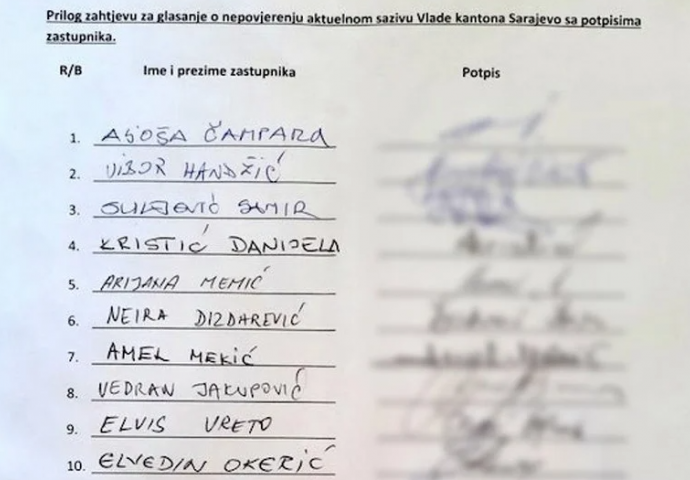 Prilog zahtjevu za glasanje o nepovjerenju aktuelnom sazivu Vlade kantona Sarajevo sa potpisima
zastupnika.
R/B Ime i prezime zastupnika Potpis
1. ADOŠA ČAMPARA
2. VIBOR HANDŽIĆ
3. SULJEVIĆ SAMIR
4. KRISTIĆ DANIJELA
5. ARIJANA MEMIĆ
6. NEIRA DIZDAREVIĆ
7. AMEL MEKIĆ
8. VEDRAN JAKUPOVIĆ
9. ELVIS VRETO
10. ELVEDIN OKERIĆ